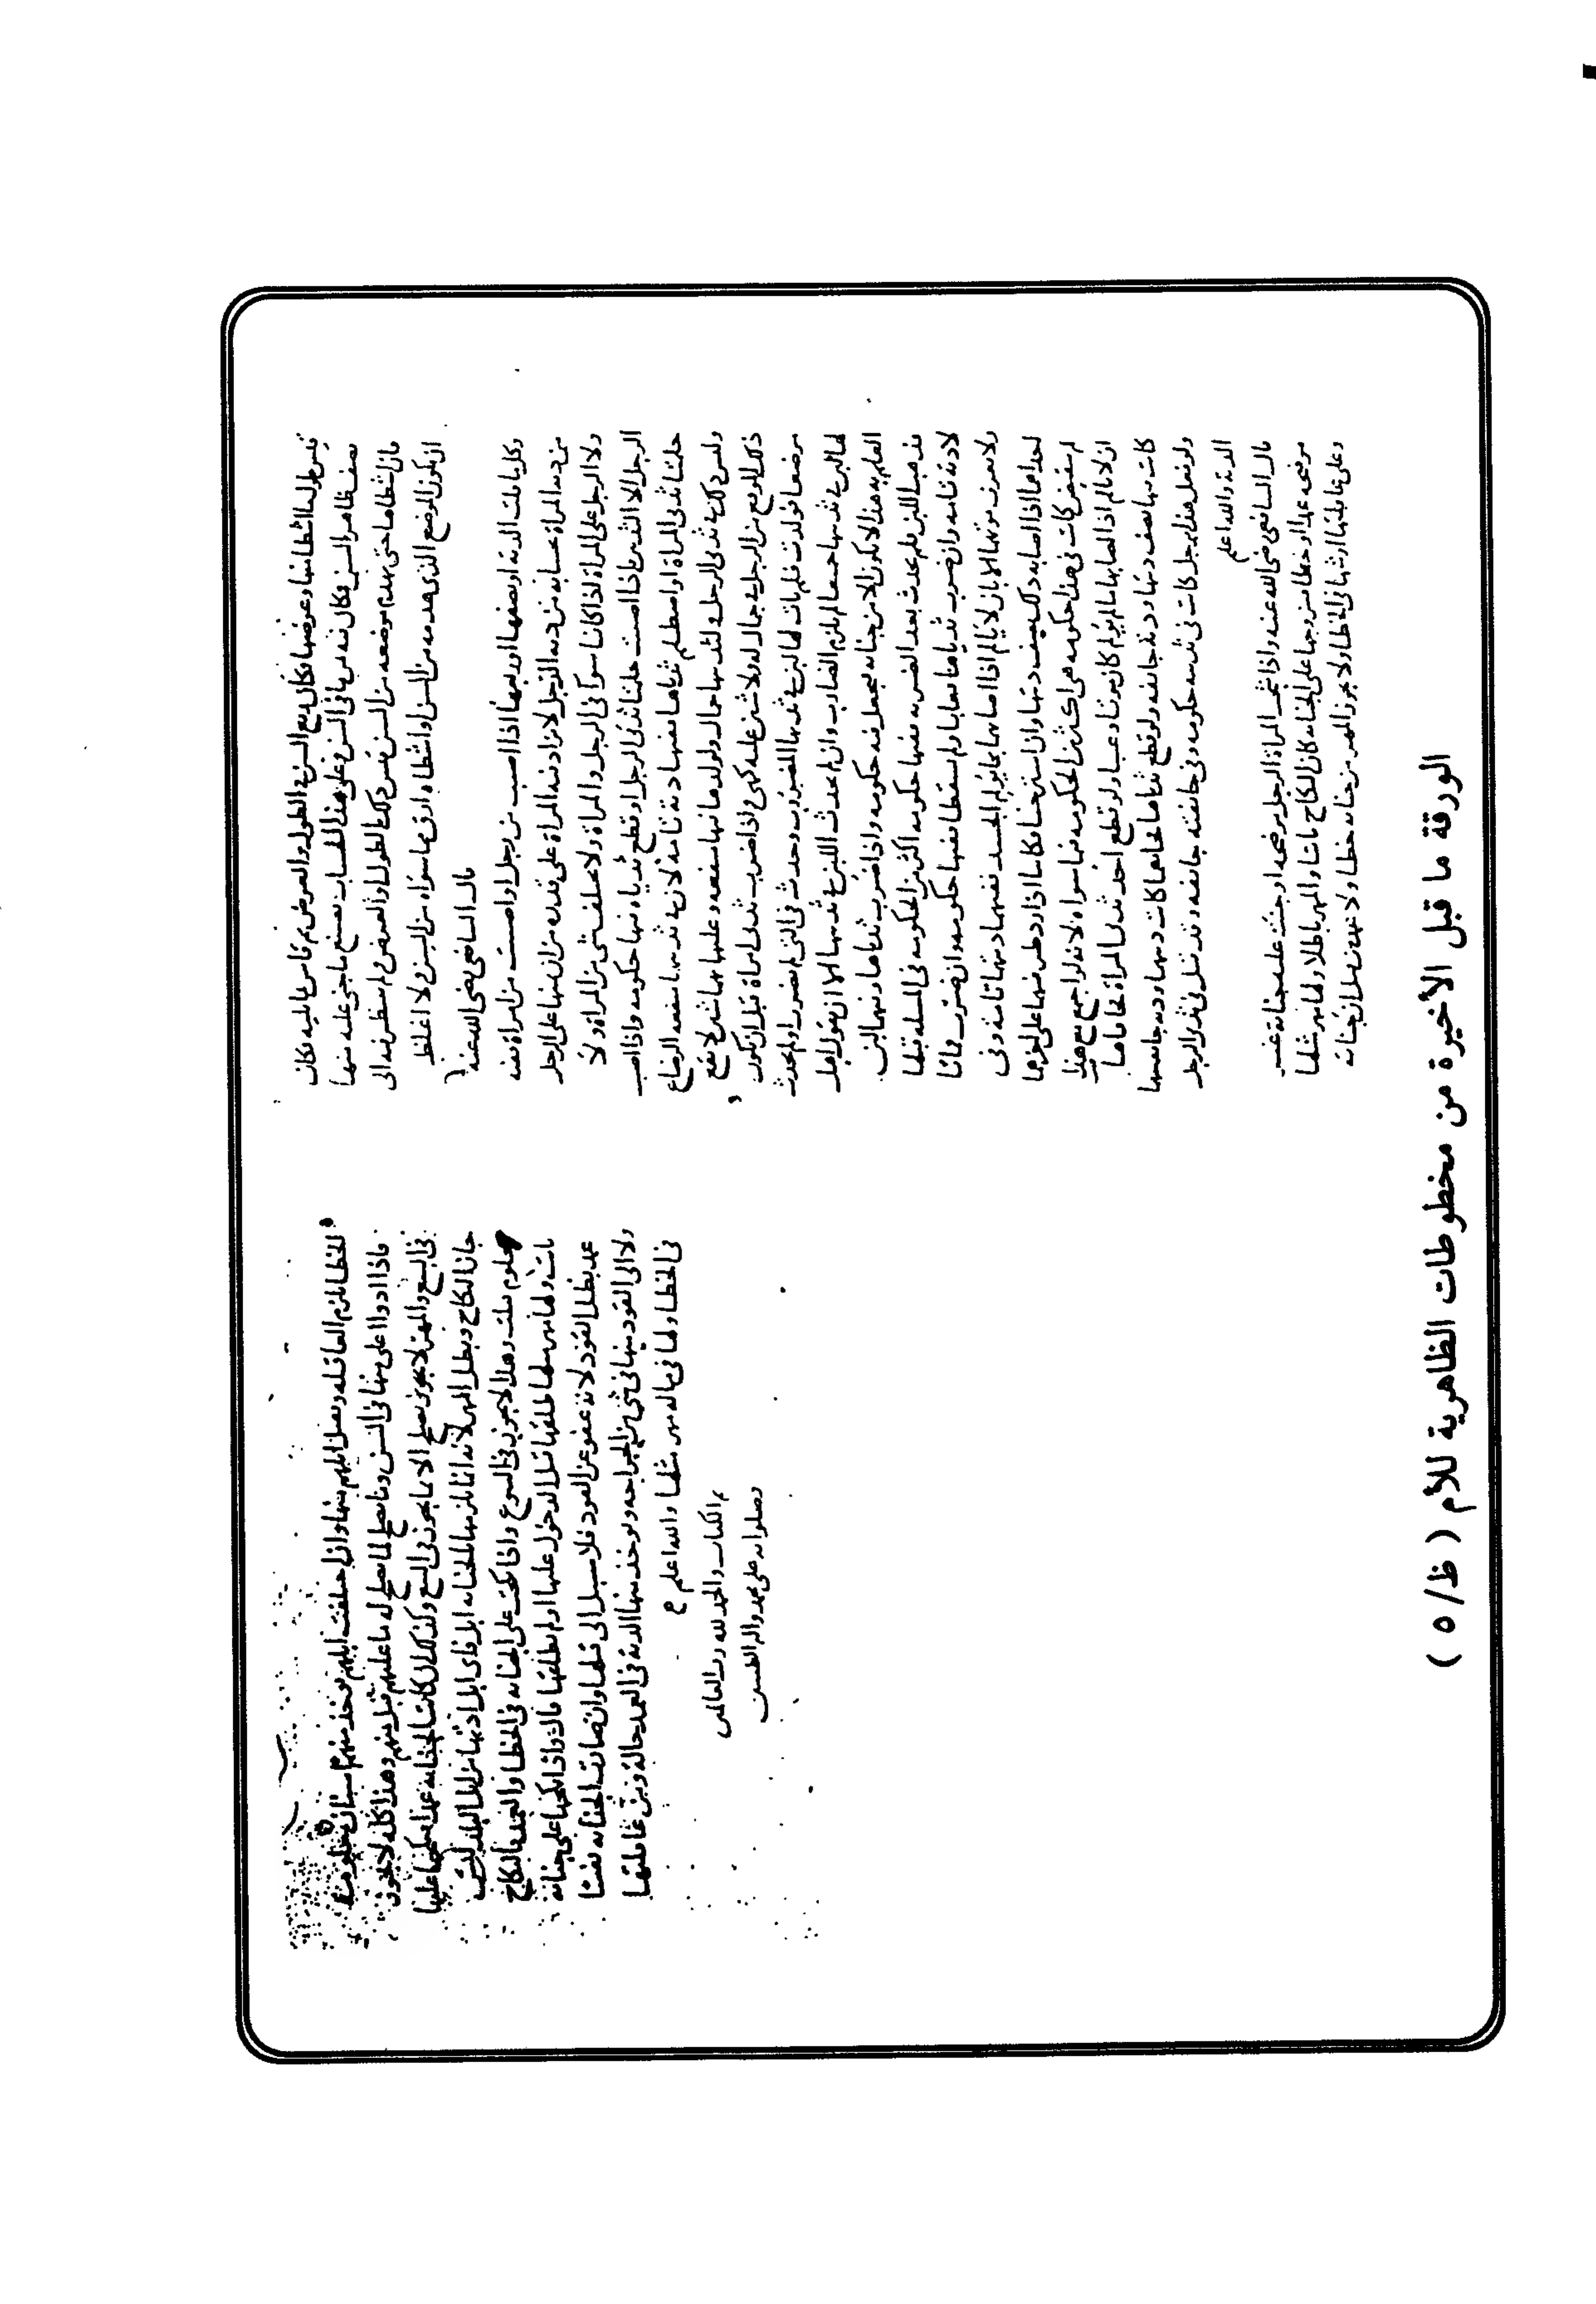 قيس طولها اشظاتها وعرضها فكان ربع السن في الطول والعرض ثم قاس ما يليه فكان
نصف ظاهر السن فكان فيه ما في السن وعلى هذا الحساب يصنع ما جنى عليه منها
فان اشظاها حتى يهدم موضعه من السن قيس ذلك الطول او العرض ولم ينظر فيه الى
ان يكون الموضع الذي هدمه من السن او اشظاه ارق مما سواه من السن ولا اغلظ
قال الشافعي رضي الله عنه
وكل ما قلت الدية او نصفها او ربعها اذا اصيب من رجل او اصيب من امراة ففيه
من دية المراة بحسابه من دية الرجل لا تزاد فيه المراة على قدره من ارش منها على الرجل
ولا الرجل على المراة اذا كانا سوا في الرجل والمراة ولا يختلف شي من المراة ولا
الرجل الا الثدين فاذا اصيب حلمتا ثدي الرجل او قطع ثدياه ففيها حكومه واذا اصيب
حلمتا ثدي المراة او اصطلم ثدياها ففيهما دية تامه لان في ثدييها منفعه الرضاع
وليس ذلك في ثدي الرجل ولثدييها جمال ولولدها فيهما منفعه وعليها بهما شين لا يقع
ذلك الموقع من الرجل في جماله ولا شين عليه كهي واذا ضرب ثدي امراة قبل ان تكون
مرضعا فولدت فلم يات لها لبن في ثديها المضروب وحدث في التي لم تضرب او لم يحدث
لها لبن في ثدييها جميعا لم يلزم الضارب وان لم يحدث اللبن في ثدييها الا ان يقول اهل
العلم به هذا لا يكون الا من جنايه فيجعل فيه حكومه واذا ضرب ثدياها وفيهما لبن
فذهب اللبن فلم يحدث بعد الضربه ففيها حكومه اكثر من الحكومه في المسله قبلها
لا دية تامه وان ضرب ثدياها فعابا ولم يسقطا ففيها حكومه وان ضربت فماتا
ولا يعرف موتهما الا بان لا يالما اذا اصابهما ما يؤلم الجسد ففيهما ديتها تامه وفي
احدهما اذا اصابه ذلك نصف ديتها وان استرخيا فكانا اذا ردا طرفيهما على اخرهما
لم ينقبضا كانت في هذا حكومه هي اكثر من الحكومه فيما سواه لانه لو اجتمع مع هذا
ان لا يالما اذا اصابهما ما يؤلم كان موتا وعيبا ولو قطع احد ثديي المراة فاجافها
كانت فيها نصف ديتها ودية جايفه ولو قطع ثدياها فاجافهما كانت ديتها ودية جايفتيهما
ولو فعل هذا برجل كانت في ثدييه حكومه وفي جايفته جايفه وقد قيل في ثدي الرجل
الدية والله اعلم
قال الشافعي رضي الله عنه واذا شجت المراة الرجل موضحه او جنت عليه جناية غير
موضحه عمدا او خطا فتزوجها على الجنايه كان النكاح ثابتا والمهر باطلا ولها مهر مثلها
وعلى عاقلتها ارشها في الخطا ولا يجوز المهر من جنايه خطا ولا عمد من قبل ان جناية
الخطا تلزم العاقله
فاذا ادوا اعلى منها في السن
في البيع والمهر لا يجوز الا بما يجوز في البيع وكذلك ان كانت الجنايه عمدا فنكحها عليها
جاز النكاح وبطل المهر لانه انما يلزمها بالجنايه ابل فاي ابل ادتها من ابل البلد
معلوم قلت وهذا لا يجوز في البيوع واذا نكحت على الجنايه في الخطا والعمد فالنكاح
ثابت ولها مهر مثلها طلقها قبل الدخول عليها او لم يطلقها قال واذا نكحها على جناية
عمد بطل القود لانه عفو عن القود فلا سبيل الى قتلها وان صارت الجنايه نفسا
ولا الى القود منها في شي من الجراحه ويوخذ منها الدية في العمد حالة ومن عاقلتها
في الخطا ولها في ماله مهر مثلها والله اعلم
تم الكتاب والحمد لله رب العالمين
وصلواته على محمد واله الطيبين
الورقة ما قبل الأخيرة من مخطوطات الظاهرية للأم ( ظ/ ٥ )